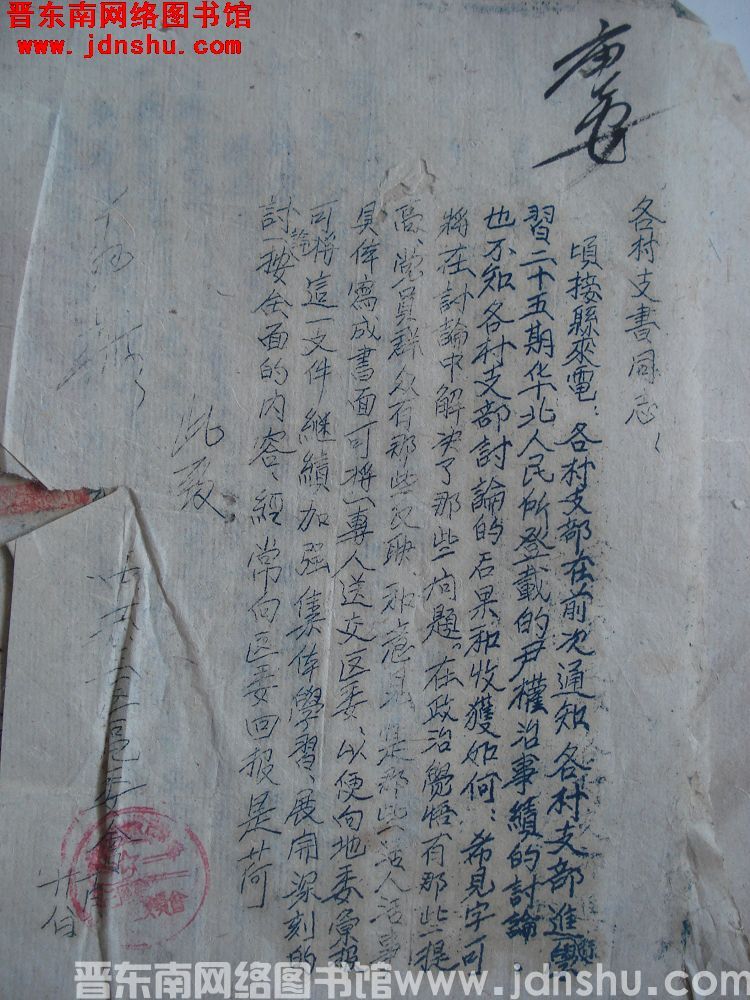 晋东南网络图书馆
www.jdnshu.com
各村支書同志、
頃接縣來電：各村支部在前次通知各村支部進
習二十五期华北人民所登載的尹權治事績的討論
也不知各村支部討論的后果和收獲如何：希見字可
將在討論中解决了那些问題。在政治覺悟有那些提
高、党員群众有那些反映、和意見是那些活人活事
具体寫成書面可捎一專人送交区委、以便向地委彙報
可捎這一文件継續加强集体學習、展開深刻的
討論按全面的内容、經常向区委回报是荷
此致
敬
晋东南网络图书馆 www.jdnshu.com